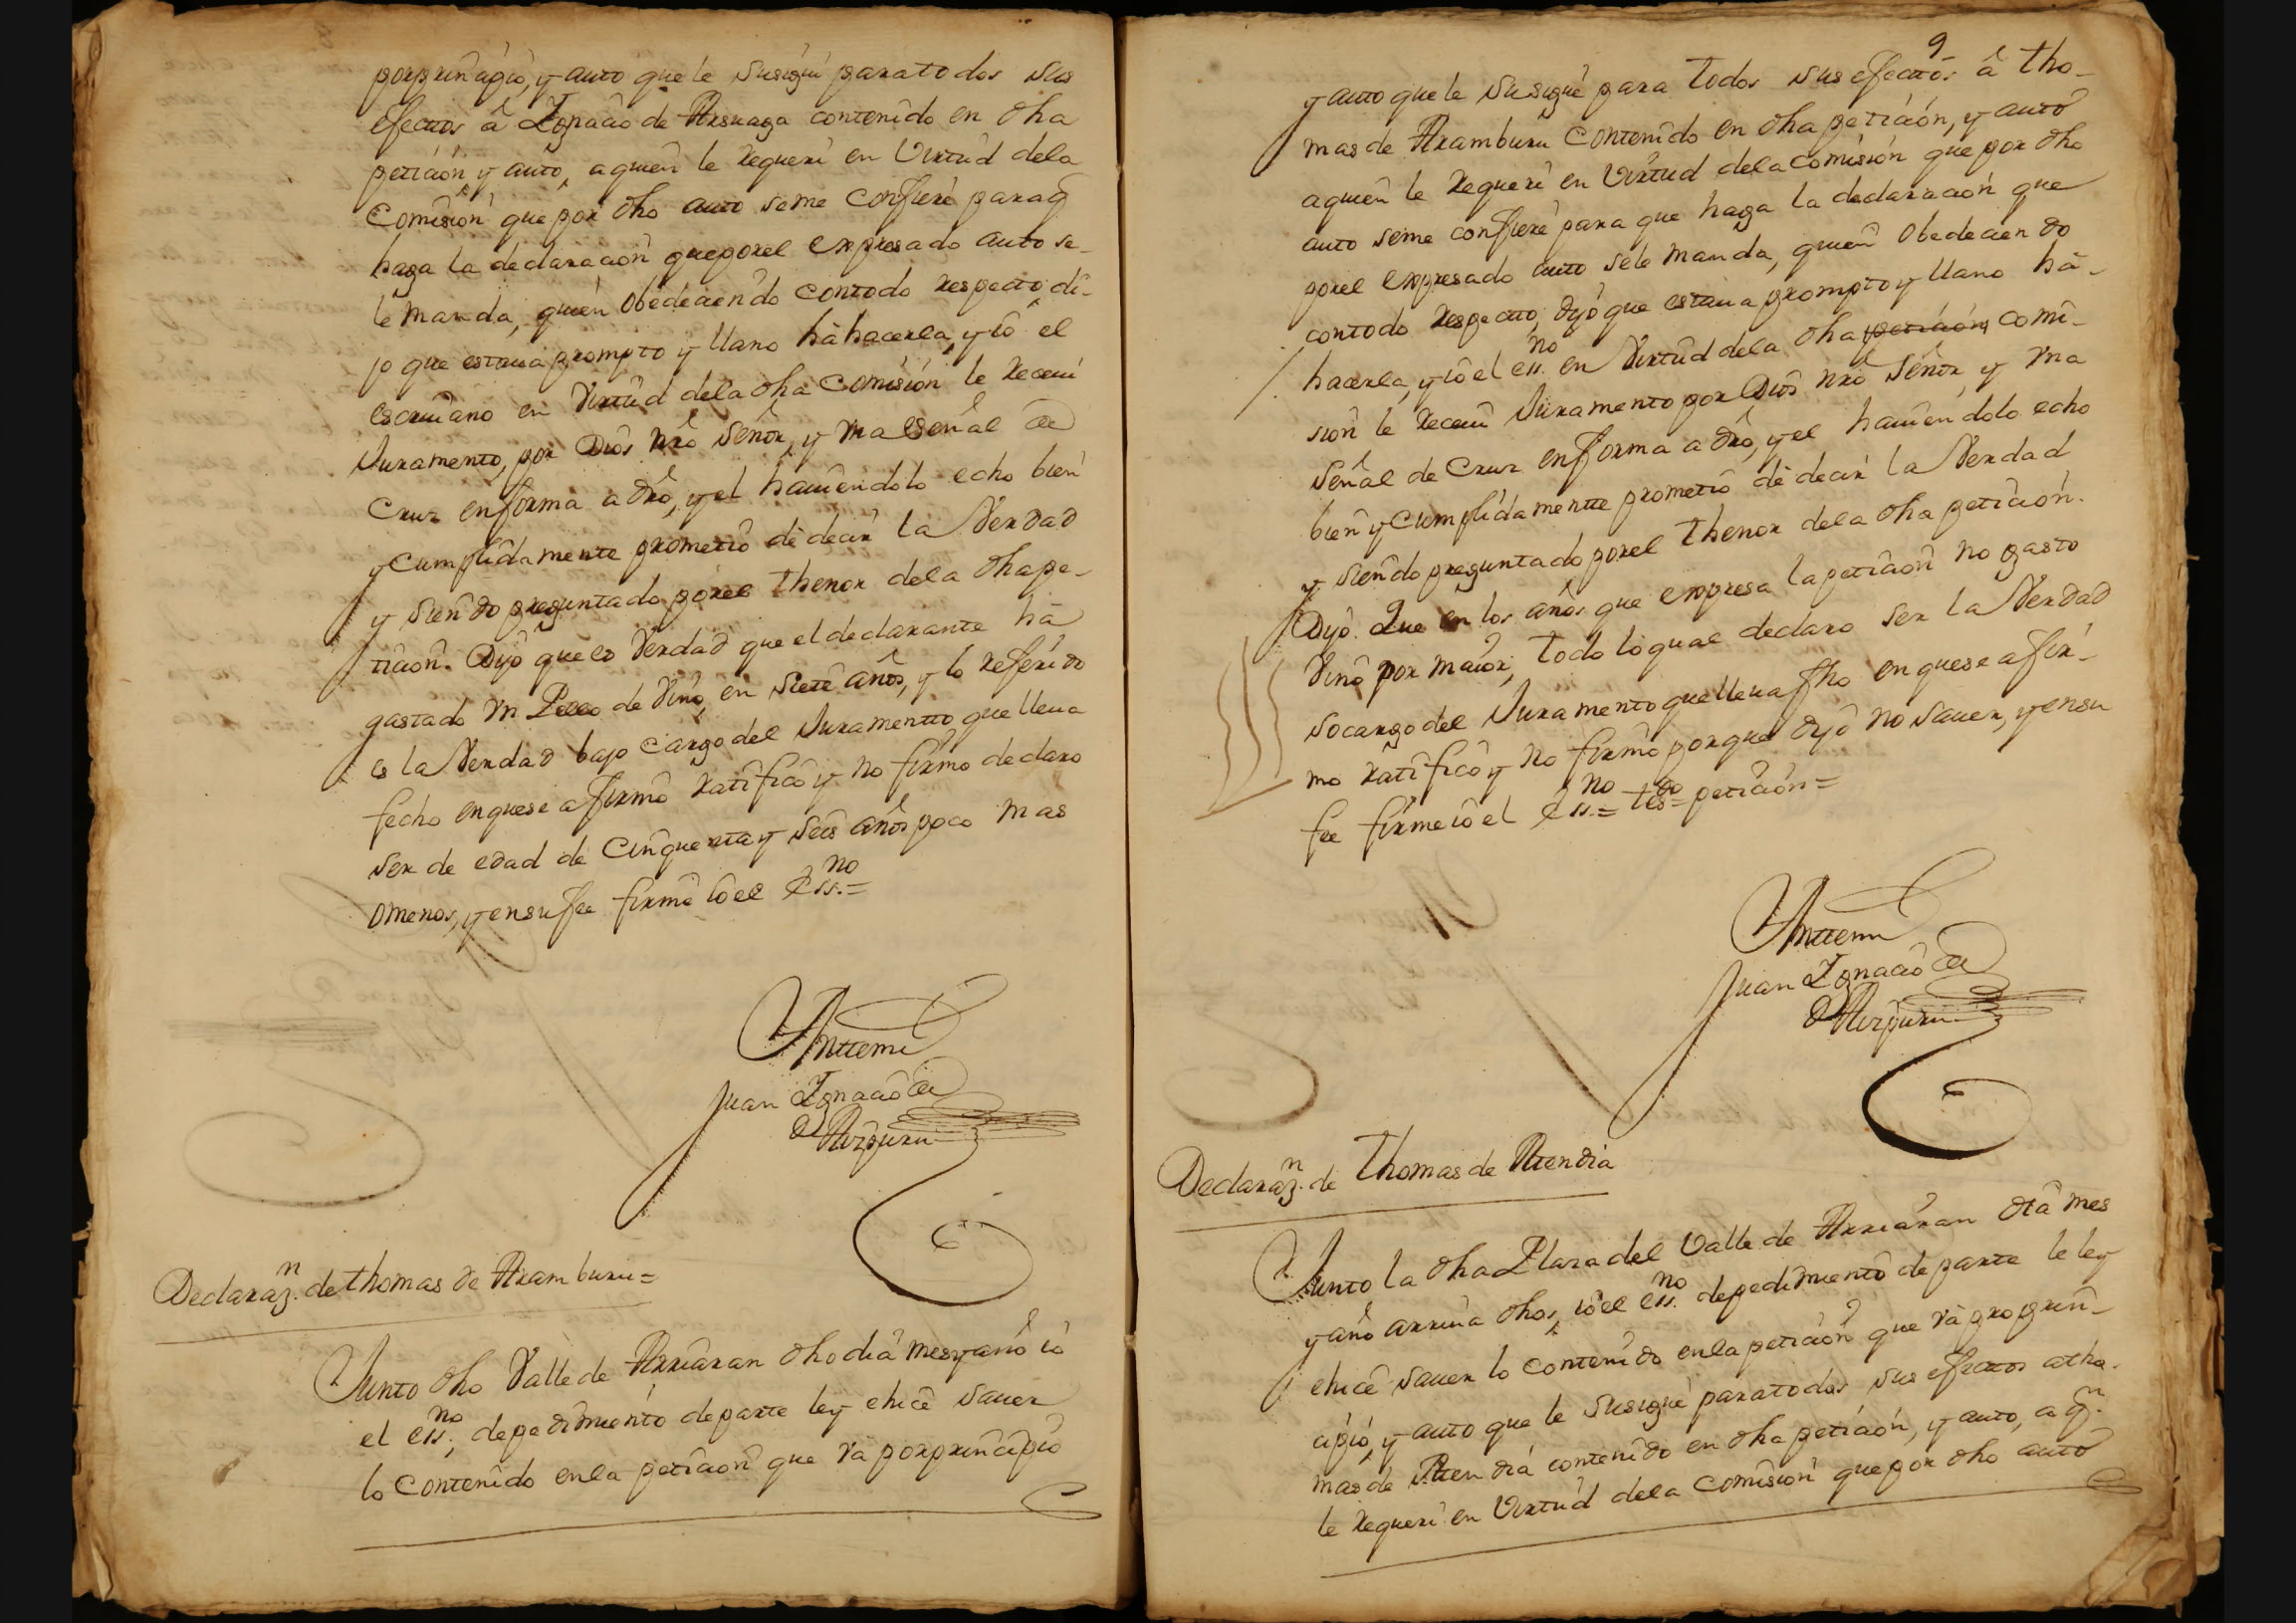 por prinçipio, y auto que le susigui para todos sus
efecttos â Ignaçio de Arsuaga contenido en dha
petiçion y auto, a quien le requeri en Virtud dela
Comision que por dho auto seme confiere paraq̃
haga la declaraçion que por el expresado auto se
le manda, quien obedeciendo contodo respecto di-
jo que estaua prompto y llano hà hacerla, y io el
escriuano en Virtud dela dha Comisión le receui
Juramento, por Dios nrô Señor, y vna señal de
Cruz en forma a drô, y el hauiendolo echo bien
y Cumplidamente prometio de decir la Verdad
y siendo preguntado por el thenor dela dha pe-
tiçion. Dijo que es Verdad que el declarante hà
gastado vn Pelleo de Vino, en siete años, y lo referido
es la Verdad bajo cargo del Juramentto que lleua
fecho en quese afirmô ratificô y no firmo declaro
ser de edad de Cinquenta y seis años poco mas
omenos, y en su fee firmè io el Ess.no=
Anttemi
Juan Ignaçio de
Aizpuru
Declaraz.n de thomas de Aramburu=
Junto dho Valle de Arriaran dho dia mes y año io
el ess.no, de pedimiento de parte ley ehicê sauer
lo Contenido en la petiçion que và por prinçipio
9
y auto que le susigue para todos sus efecttos â tho-
mas de Aramburu Contenido en dha petiçion, y auto
aquien le requeri en Virtud dela Comision que por dho
auto seme confiere para que haga la declaraçion que
por el expresado auto sele manda, quien obedeciendo
contodo respectto, dijo que estaua prompto y llano hà
hacerla, y io el ess.no en Virtud dela dha petiçion comi-
sion le receui Juramento por Dios nrô Señor y vna
señal de Cruz en forma a drô, y el hauiendolo echo
bien y Cumplidamentte prometio de decir la Verdad
y siendo preguntado por el thenor dela dha petiçion.
Dijo. Que en los años que expresa la petiçion no gasto
Vino por maior, todo loqual declaro ser la Verdad
socargo del Juramento que lleua fho en quese afir-
mo ratificò y no firmo porque dijo no sauer, y ensu
fee firme io el Ess.no= tes.do= petiçion=
Anttemi
Juan Ignaçio de
Aizpuru
Declaraz.n de thomas de Atendia
Junto la dha Plaza del Valle de Arriaran dia mes
y año arriua dhos, io el ess.no de pedimiento de parte le ley
ehicê sauer lo contenido en la petiçion que và pro prin-
cipio, y auto que le susigue para todos sus efecttos atho-
mas de Atendia contenido en dha petiçion, y auto, a q.n
le requeri en Virtud dela Comision que por dho auto